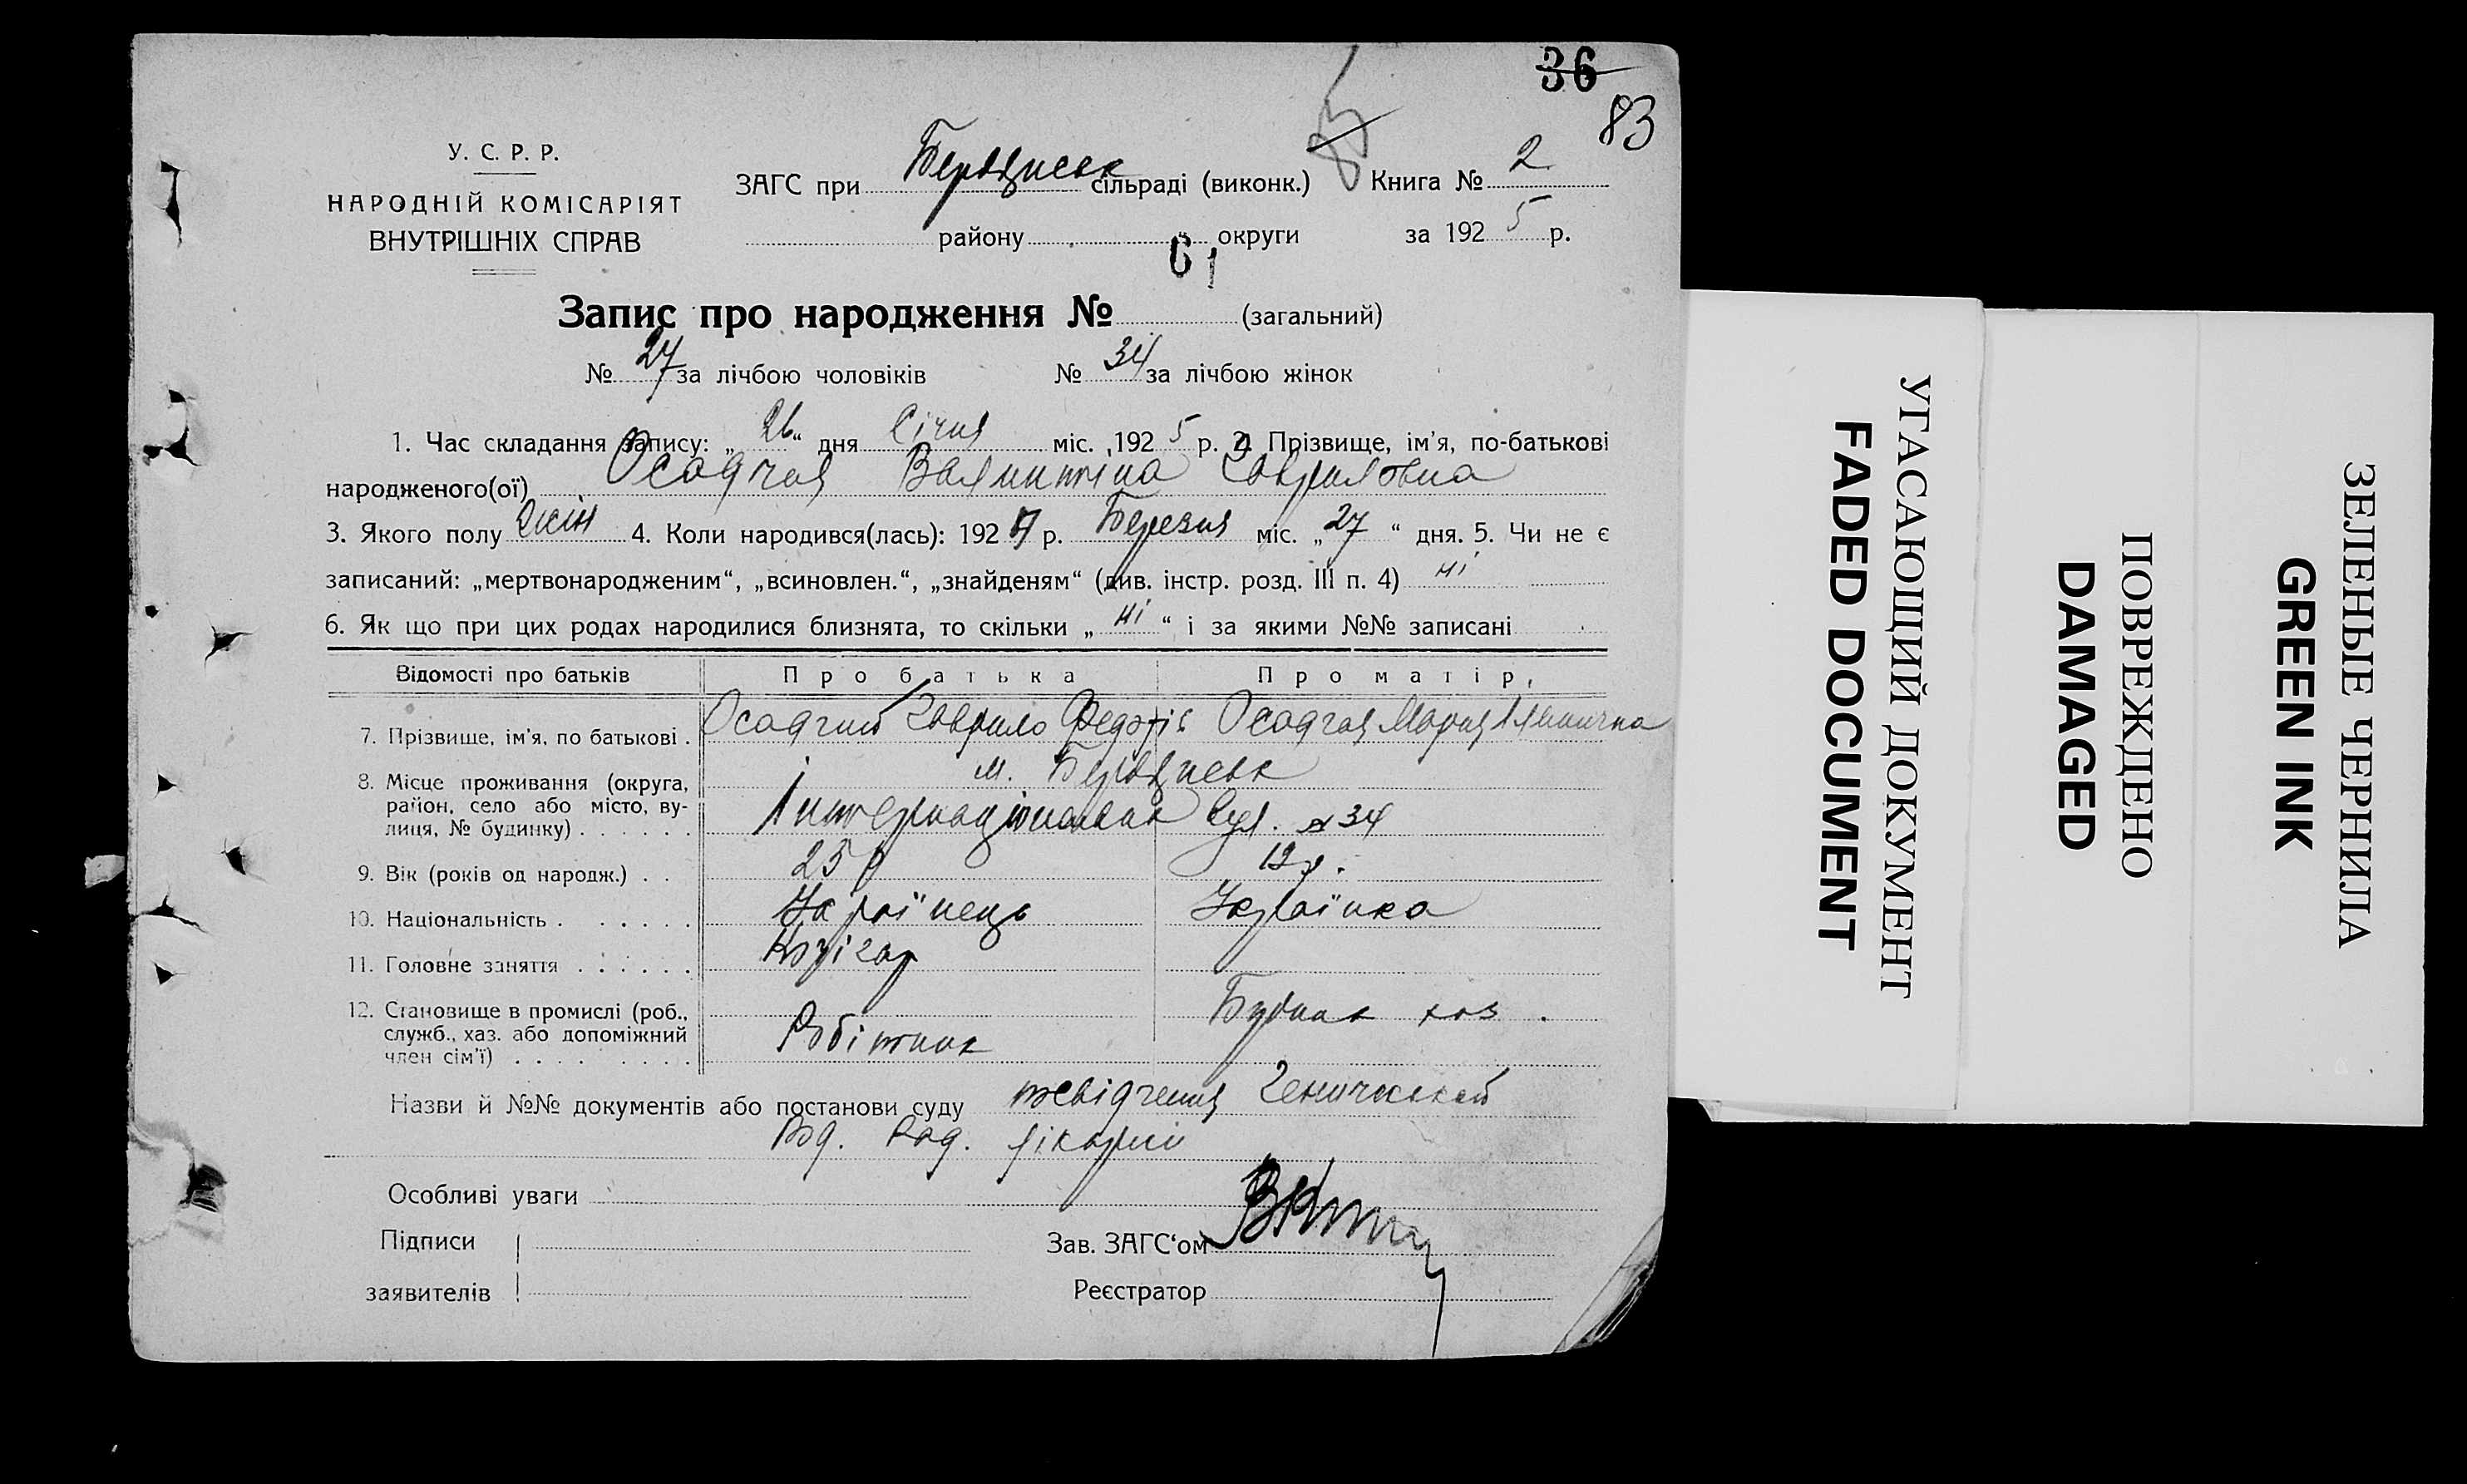 36
83
85
У. С. Р. Р.
НАРОДНІЙ КОМІСАРІЯТ
ВНУТРІШНІХ СПРАВ
ЗАГС при Бердянськ сільраді (виконк.) Книга № 2
району округи за 192 5 р.
61
Запис про народження № (загальний)
№ 27 за лічбою чоловіків № 34 за лічбою жінок
1. Час складання запису: „ 26 “ дня Січня міс. 192 5 р. 2. Прізвище, ім’я, по-батькові
народженого(ої) Осадчая Валинтина Гавриловна
3. Якого полу жін 4. Коли народився(лась): 192 р. Березня міс. „ 27 “ дня. 5. Чи не є
записаний: „мертвонародженим“, „всиновлен.“, „знайденям“ (див. інстр. розд. III п. 4) ні
6. Як що при цих родах народилися близнята, то скільки „ ні “ і за якими №№ записані
Відомості про батьків Про батька Про матір
7. Прізвище, ім’я, по батькові . Осадчий Гаврило Федотів Осадчая Мария
8. Місце проживання (округа, м. Бердянськ
район, село або місто, ву-
лиця, № будинку) . . . . . . Інтернаціональна вул. № 34
9. Вік (років од народж.) . . 25 р 19 р.
10. Національність . . . . . . Українець Українка
11. Головне заняття . . . . . . Кочігар
12. Становище в промислі (роб.,
служб., хаз. або допоміжний Робітник
член сім’ї) . . . . . . .
Назви й №№ документів або постанови суду Генической
Род.
Особливі уваги
Підписи
заявителів
Зав. ЗАГС‘ом
Реєстратор
УГАСАЮЩИЙ ДОКУМЕНТ
FADED DOCUMENT
ПОВРЕЖДЕНО
DAMAGED
ЗЕЛЕНЫЕ ЧЕРНИЛА
GREEN INK